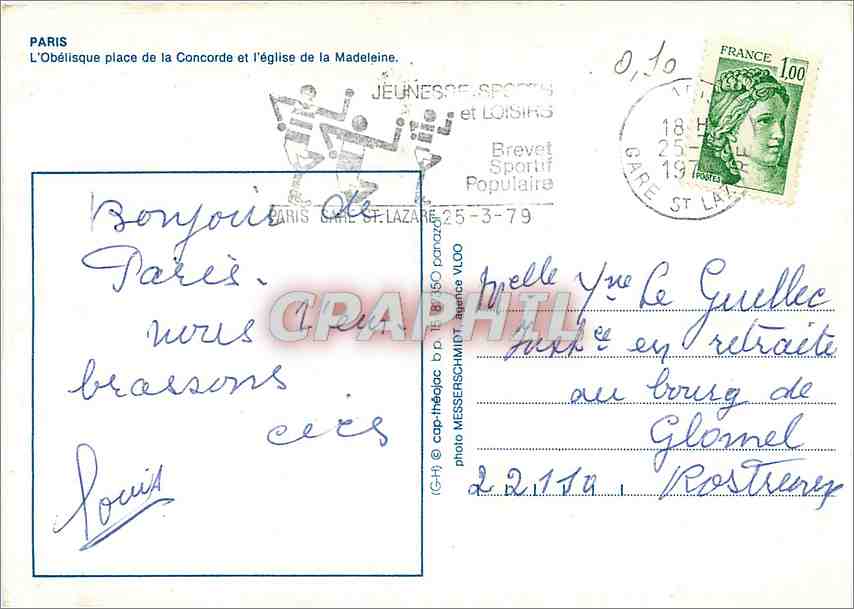 PARIS
L'Obélisque place de la Concorde et l'église de la Madeleine.
0,10
FRANCE
1,00
POSTES
JEUNESSE-SPORTS
et LOISIRS
Brevet
Sportif
Populaire
PARIS GARE ST.LAZARE 25-3-79
18 H
25-
197
GARE ST LAZARE
Bonjour de
Paris.
nous
brassons
Louis
(G-H) © cap-théojac b p. 15 87350 panazol
photo MESSERSCHMIDT, agence VLOO
CPARPHIL
Melle Yne Le Guellec
en retraite
au bourg de
Glomel
22110 Rostrenen